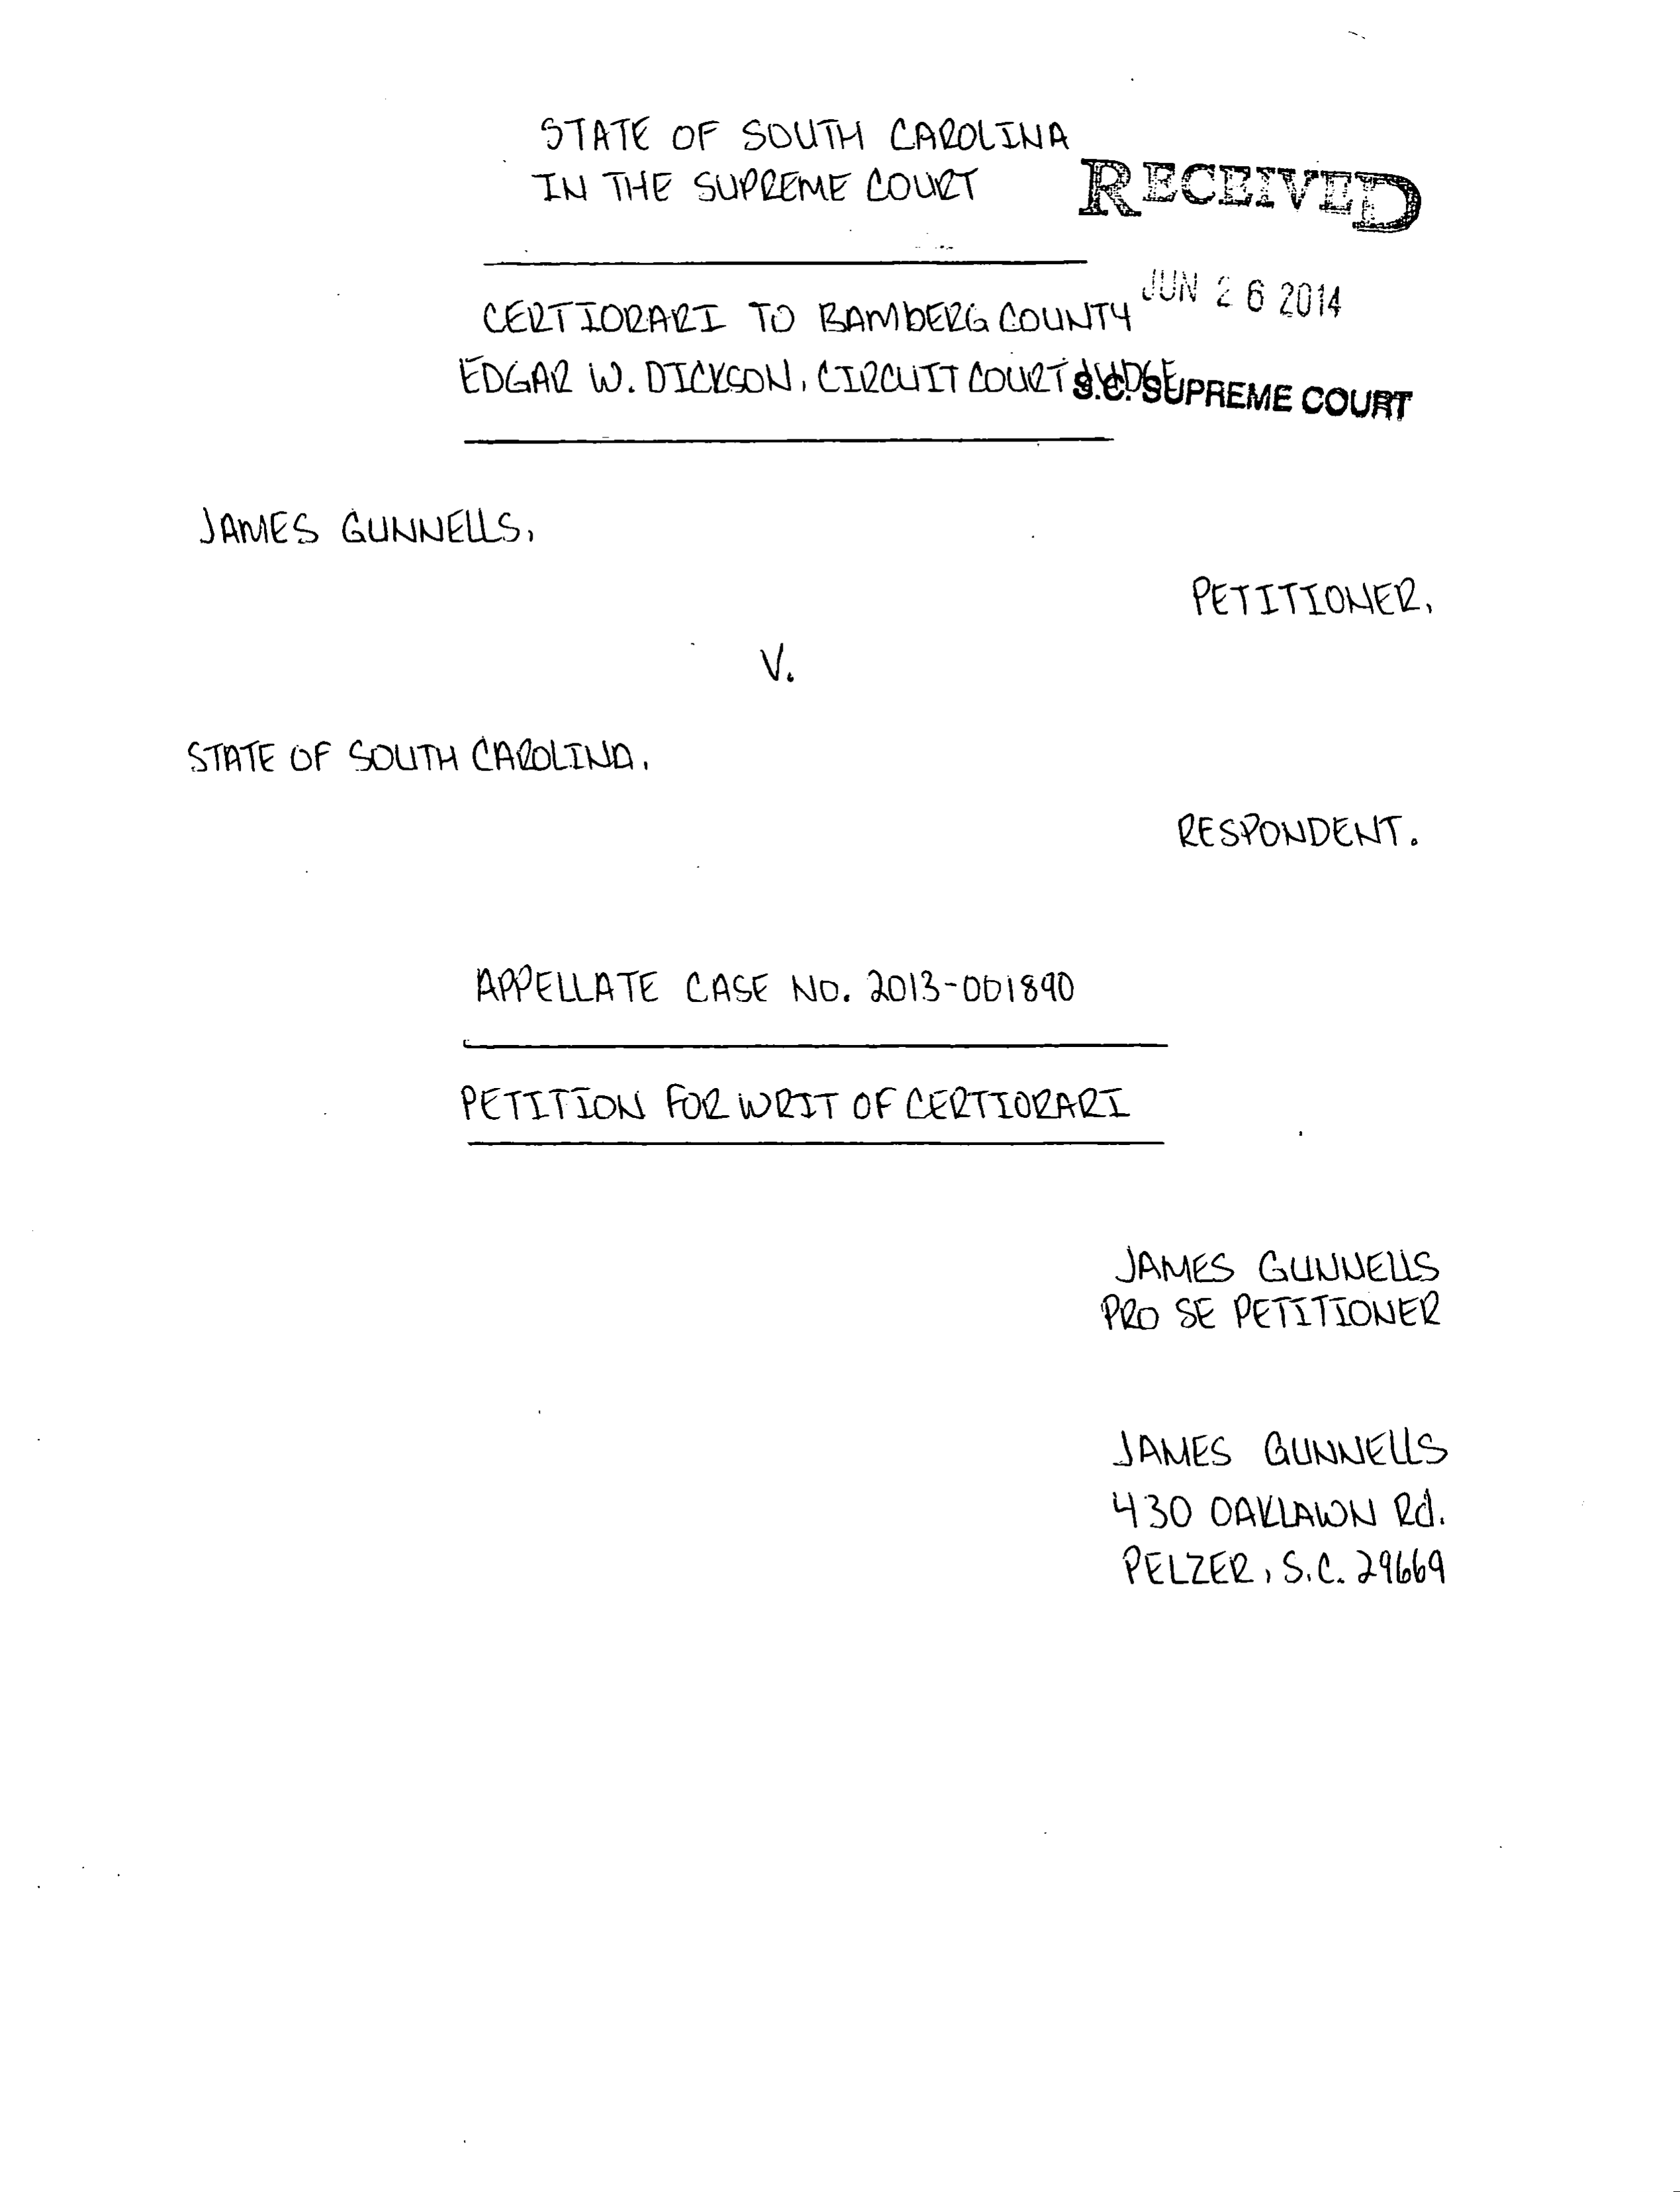 STATE OF SOUTH CAROLINA
IN THE SUPREME COURT
RECEIVED
JUN 26 2014
S.C. SUPREME COURT
CERTIORARI TO BAMBERG COUNTY
EDGAR W. DICKSON, CIRCUIT COURT JUDGE
JAMES GUNNELLS,
PETITIONER,
V.
STATE OF SOUTH CAROLINA,
RESPONDENT.
APPELLATE CASE NO. 2013-001890
PETITION FOR WRIT OF CERTIORARI
JAMES GUNNELLS
PRO SE PETITIONER
JAMES GUNNELLS
430 OAKLAWN Rd.
PELZER, S.C. 29669